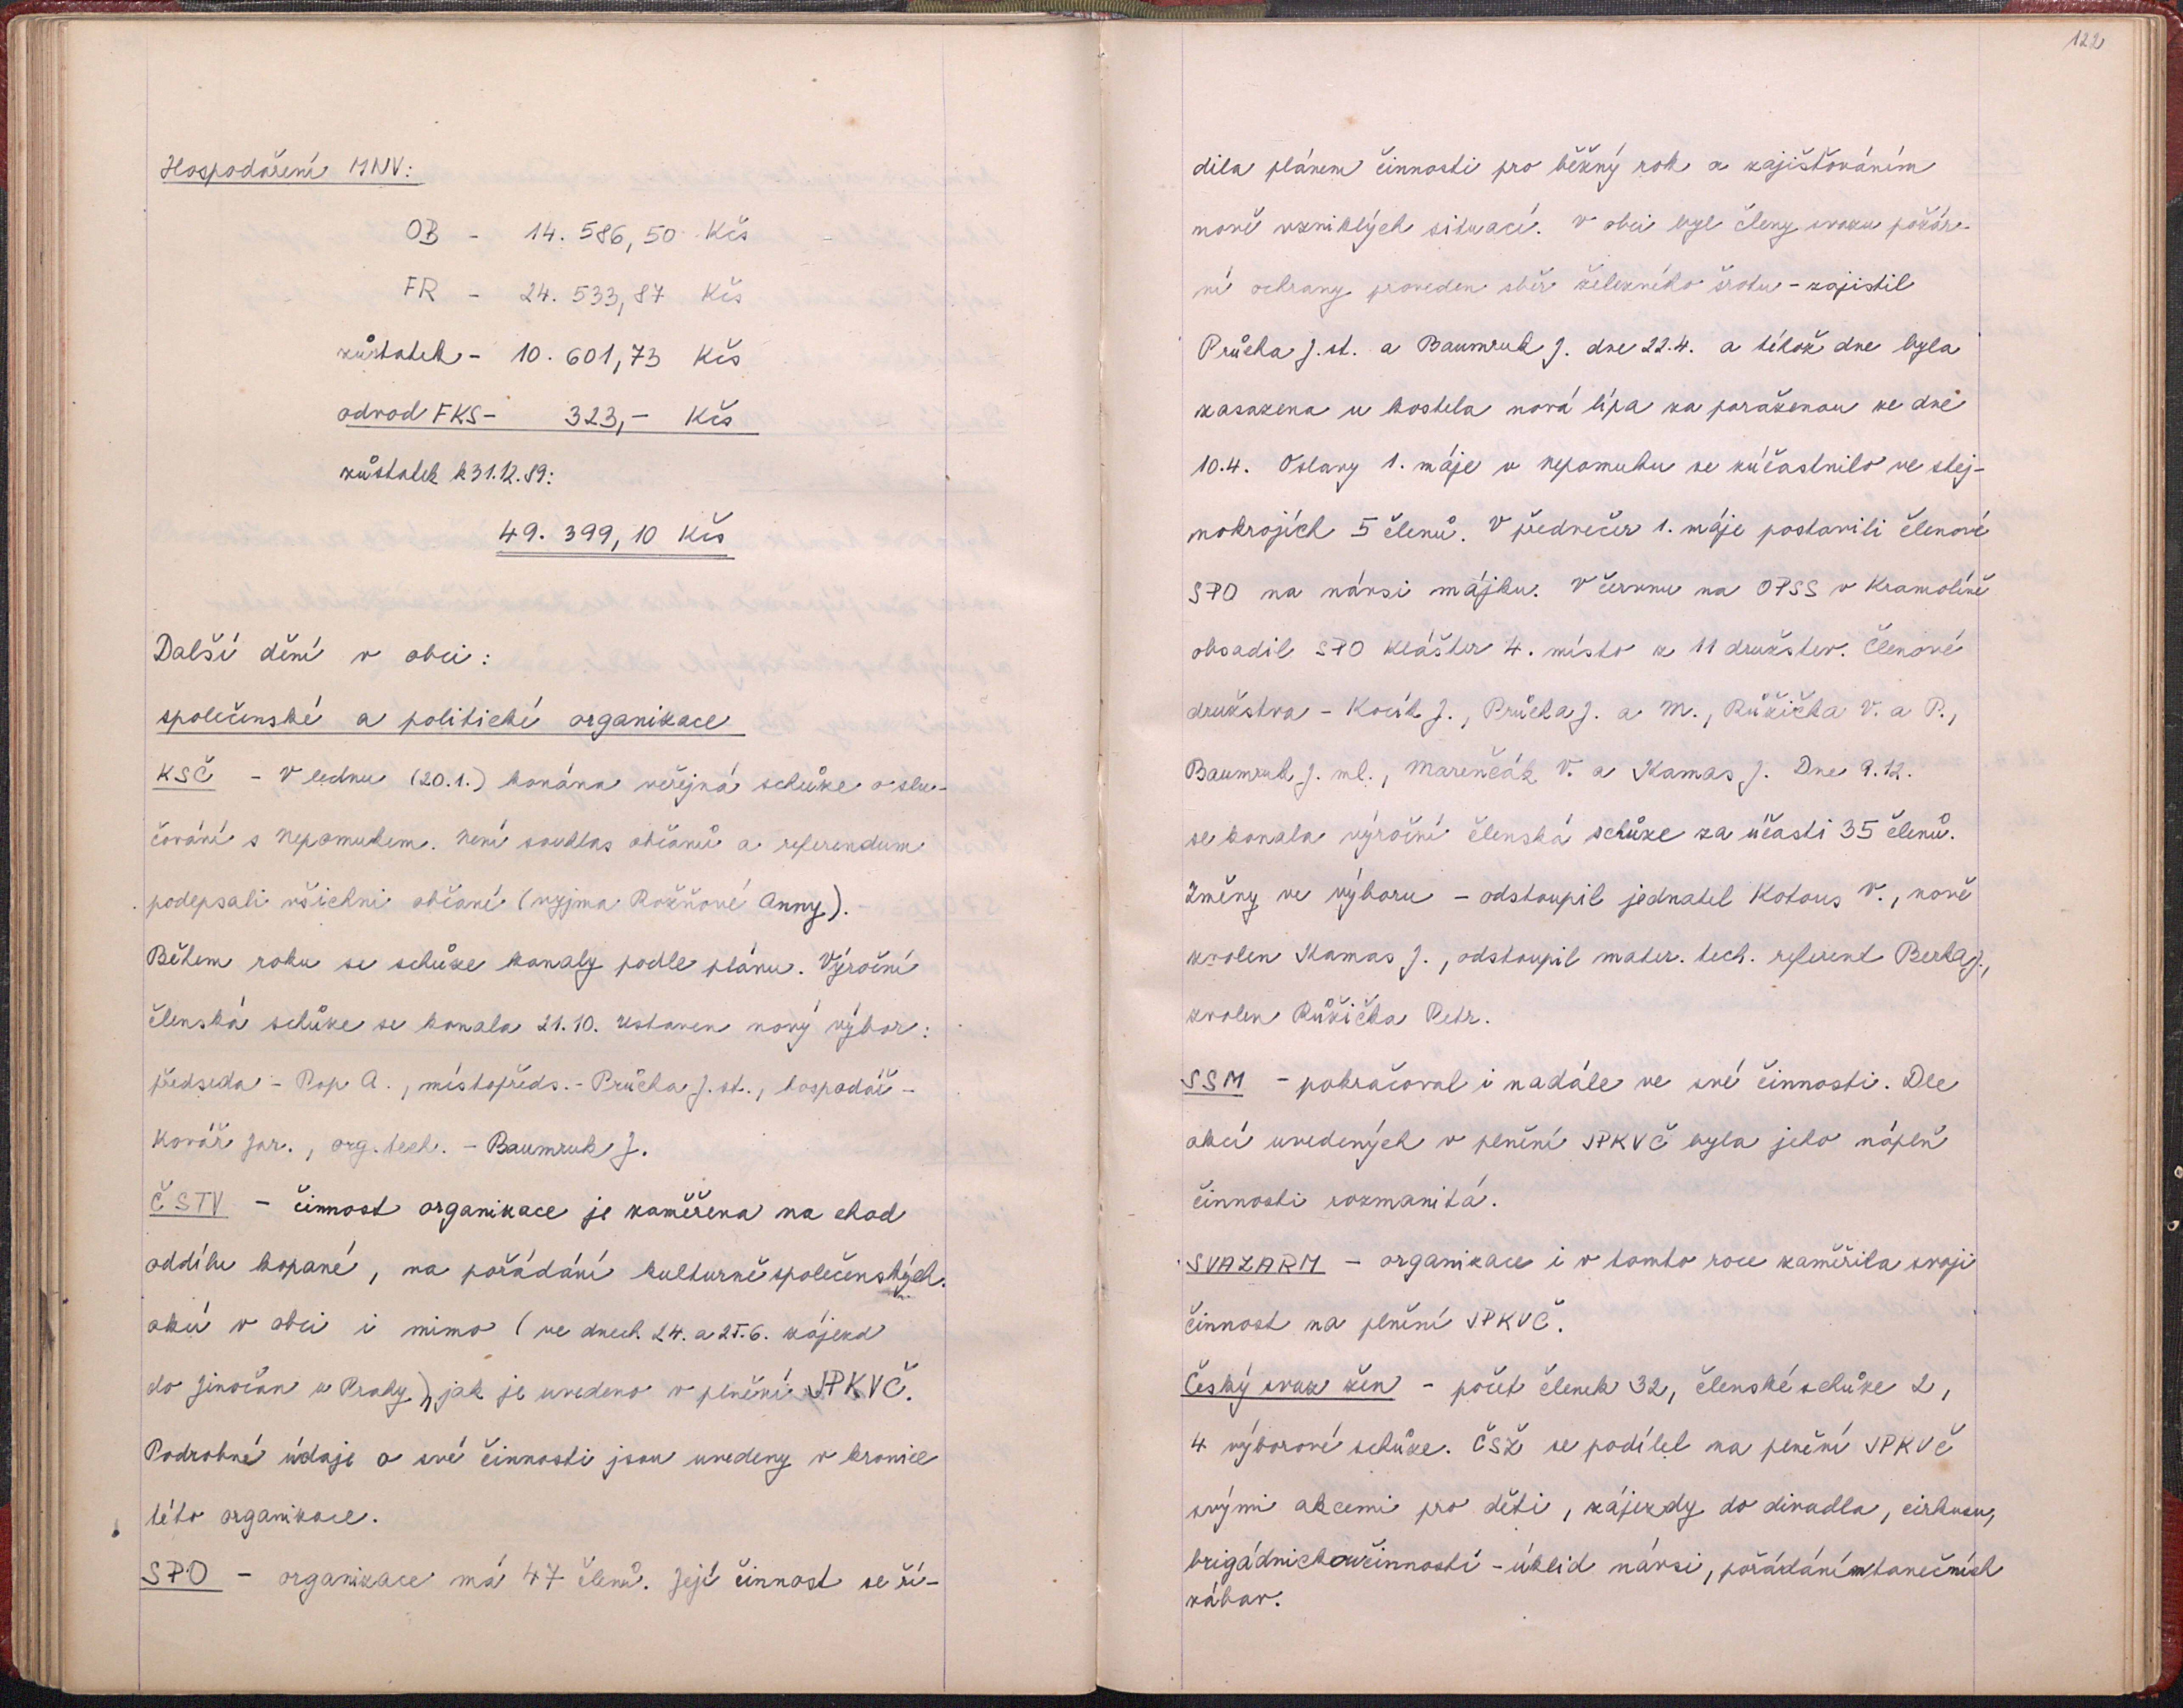 Hospodaření MNV:
OB - 14.586,50 Kčs
FR - 24.533,87 Kčs
zůstatek - 10.601,73 Kčs
odvod FKS - 323,- Kčs
zůstatek k 31.12.89:
49.399,10 Kčs
Další dění v obci:
společenské a politické organizace
KSČ - V lednu (20.1.) konána veřejná schůze o slu-
čování s Nepomukem. Není souhlas občanů a referendum
podepsali všichni občané (vyjma Rožňové Anny).
Během roku se schůze konaly podle plánu. Výroční
členská schůze se konala 21.10. Ustaven nový výbor:
předseda - Pop A., místopřds. - Průcha J. st., hospodář -
Kovář Jar., org. tech. - Baumruk J.
ČSTV - činnost organizace je zaměřena na chod
oddílu kopané, na pořádání kulturně společenských
akcí v obci i mimo (ve dnech 24. a 25.6. zájezd
do Jinočan u Prahy), jak je uvedeno v plnění JPKVČ.
Podrobné údaje o své činnosti jsou uvedeny v kronice
této organizace.
SPO - organizace má 47 členů. Její činnost se ří-
122
dila plánem činnosti pro běžný rok a zajišťováním
nově vzniklých situací. V obci byl členy svazu požár-
ní ochrany proveden sběr železného šrotu - zajistil
Průcha J. st. a Baumruk J. dne 22.4. a téhož dne byla
zasazena u kostela nová lípa za poraženou ze dne
10.4. Oslavy 1. máje v Nepomuku se zúčastnilo ve stej-
nokrojích 5 členů. V předvečer 1. máje postavili členové
SPO na návsi májku. V červnu na OPSS v Kramolíně
obsadil SPO Klášter 4. místo z 11 družstev. Členové
družstva - Kocík J., Průcha J. a M., Růžička V. a P.,
Baumruk J. ml., Marenčák V. a Kamas J. Dne 9.12.
se konala výroční členská schůze za účasti 35 členů.
Změny ve výboru - odstoupil jednatel Kotous V., nově
zvolen Kamas J., odstoupil mater. tech. referent Berka J.,
zvolen Růžička Petr.
SSM - pokračoval i nadále ve své činnosti. Dle
akcí uvedených v plnění JPKVČ byla jeho náplň
činnosti rozmanitá.
SVAZARM - organizace i v tomto roce zaměřila svoji
činnost na plnění JPKVČ.
Český svaz žen - počet členek 32, členské schůze 2,
4 výborové schůze. ČSŽ se podílel na plnění JPKVČ
svými akcemi pro děti, zájezdy do divadla, cirkusu,
brigádnickou činností - úklid návsi, pořádáním tanečních
zábav.